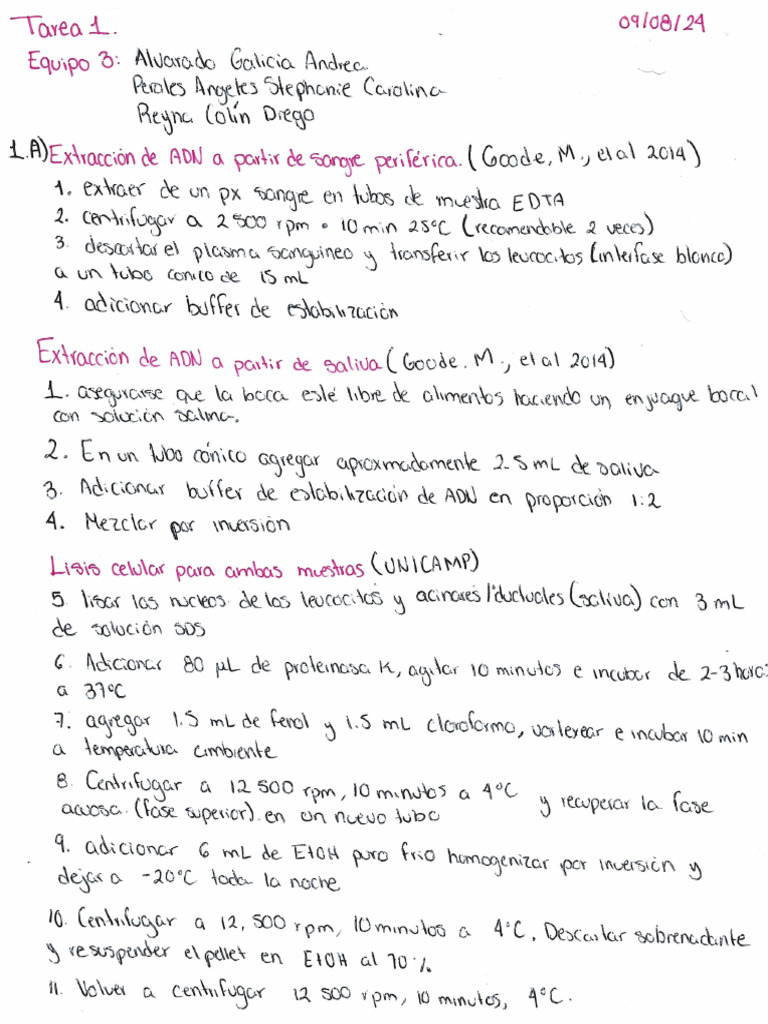 Tarea 1.
09/08/24
Equipo 3: Alvarado Galicia Andrea
Perales Angeles Stephanie Carolina
Reyna Colín Diego
1.A) Extracción de ADN a partir de sangre periférica. (Goode, M., et al 2014)
1. extraer de un px sangre en tubos de muestra EDTA
2. centrifugar a 2 500 rpm • 10 min 25°C (recomendable 2 veces)
3. descartar el plasma sanguineo y transferir los leucocitos (interfase blanca)
a un tubo conico de 15 mL
4. adicionar buffer de estabilización
Extracción de ADN a partir de saliva (Goode. M., et al 2014)
1. asegurarse que la boca esté libre de alimentos haciendo un enjuague bocal
con solución salina.
2. En un tubo cónico agregar aproximadamente 2.5 mL de saliva
3. Adicionar buffer de estabilización de ADN en proporción 1:2
4. Mezclar por inversión
Lisis celular para ambas muestras (UNICAMP)
5. lisar los nucleos de los leucocitos y acinares/ductuales (saliva) con 3 mL
de solución SDS
6. Adicionar 80 µL de proteinasa K, agitar 10 minutos e incubar de 2-3 horas
a 37°C
7. agregar 1.5 mL de fenol y 1.5 mL cloroformo, vortexear e incubar 10 min
a temperatura ambiente
8. Centrifugar a 12 500 rpm, 10 minutos a 4°C y recuperar la fase
acuosa (fase superior) en un nuevo tubo
9. adicionar 6 mL de EtOH puro frio homogenizar por inversión y
dejar a -20°C toda la noche
10. Centrifugar a 12, 500 rpm, 10 minutos a 4°C, Descartar sobrenadante
y resuspender el pellet en EtOH al 70%
11. Volver a centrifugar 12 500 rpm, 10 minutos, 4°C.